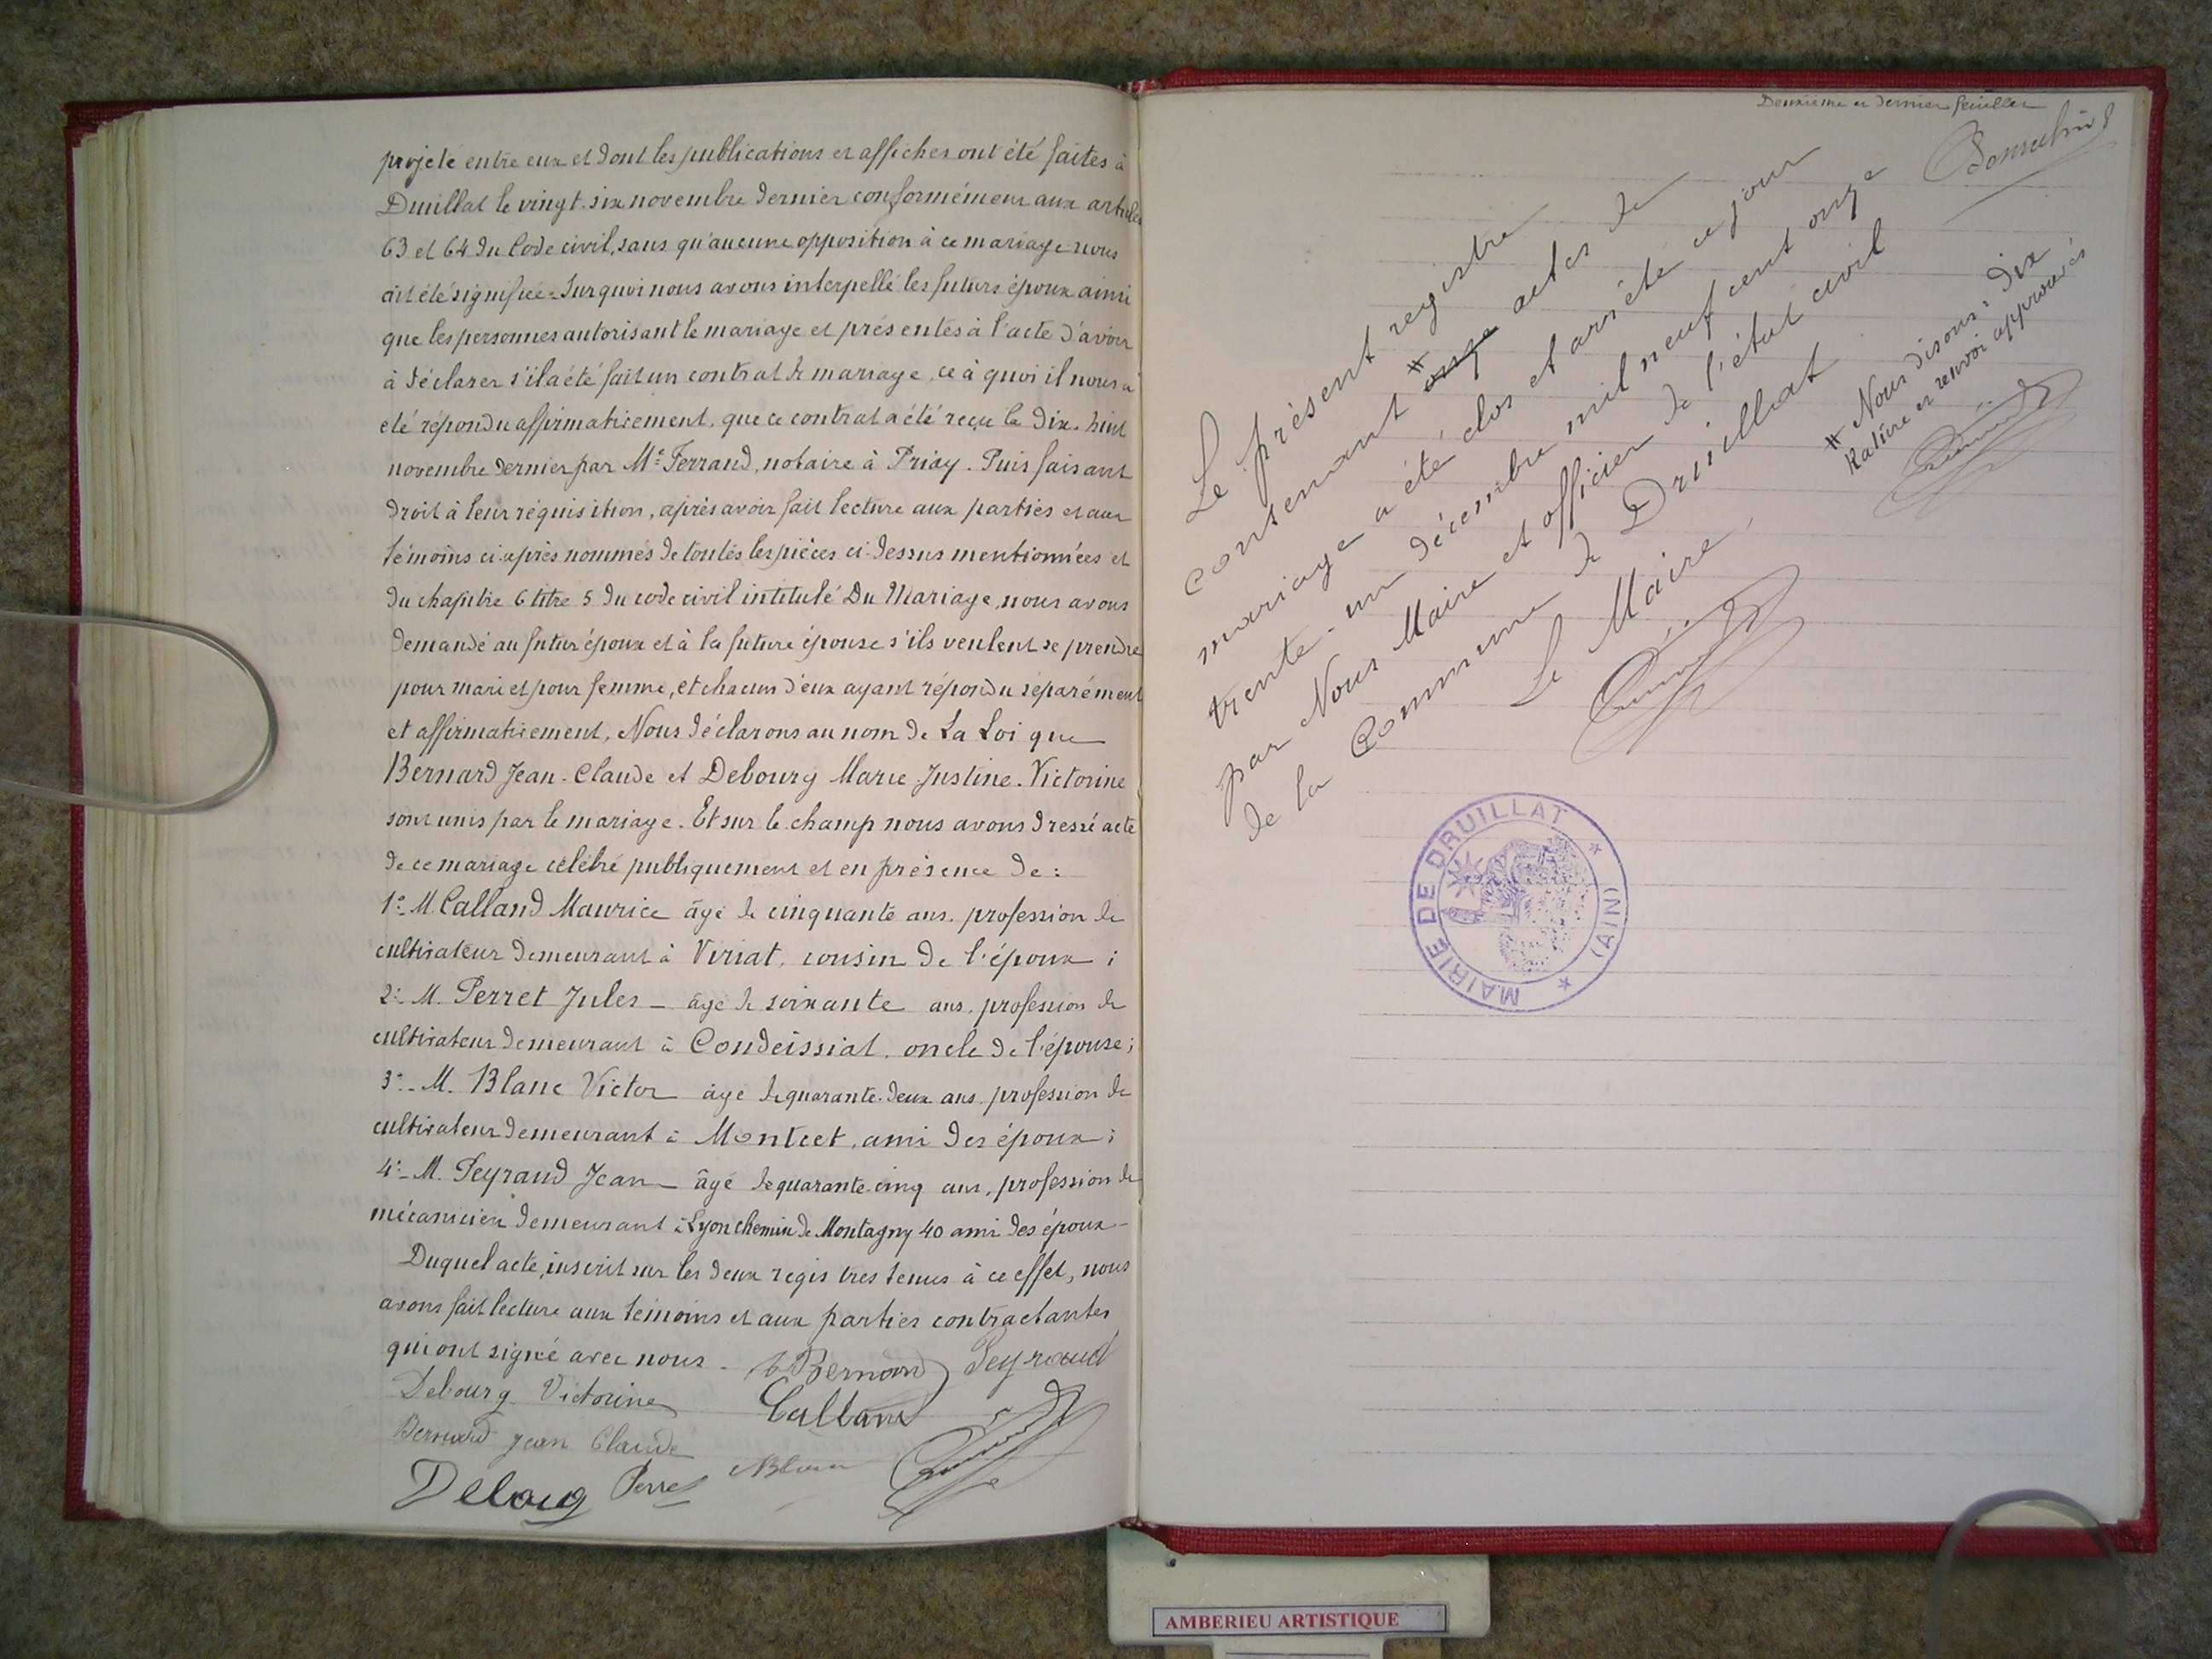 projeté entre eux et dont les publications et affiches ont été faites à
Druillat le vingt-six novembre dernier conformément aux articles
63 et 64 du Code civil, sans qu'aucune opposition à ce mariage nous
ait été signifiée. Sur quoi nous avons interpellé les futurs époux ainsi
que les personnes autorisant le mariage et présentes à l'acte d'avoir
à déclarer s'il a été fait un contrat de mariage, ce à quoi il nous a
été répondu affirmativement, que ce contrat a été reçu le dix-huit
novembre dernier par Me Ferrand, notaire à Priay. Puis faisant
droit à leur réquisition, après avoir fait lecture aux parties et aux
témoins ci-après nommés de toutes les pièces ci-dessus mentionnées et
du chapitre 6 titre 5 du code civil intitulé Du Mariage, nous avons
demandé au futur époux et à la future épouse s'ils veulent se prendre
pour mari et pour femme, et chacun d'eux ayant répondu séparément
et affirmativement, Nous déclarons au nom de La Loi que
Bernard Jean-Claude et Debourg Marie-Justine-Victorine
sont unis par le mariage. Et sur le champ nous avons dressé acte
de ce mariage célébré publiquement et en présence de :
1° M. Calland Maurice âgé de cinquante ans, profession de
cultivateur demeurant à Viriat, cousin de l'époux ;
2° M. Perret Jules - âgé de soixante ans, profession de
cultivateur demeurant à Condeissiat, oncle de l'épouse ;
3° - M. Blanc Victor âgé de quarante-deux ans, profession de
cultivateur demeurant à Montcet, ami des époux ;
4° - M. Peyraud Jean - âgé de quarante-cinq ans, profession de
mécanicien demeurant à Lyon chemin de Montagny 40 ami des époux -
Duquel acte, inscrit sur les deux registres tenus à ce effet, nous
avons fait lecture aux témoins et aux parties contractantes
qui ont signé avec nous -
Bernard Peyraud
Debourg Victorine Calland
Bernard Jean Claude
Debourg Perret Blanc
Deuxième et dernier feuillet
Le présent registre
contenant # onze actes de
mariage a été clos et arrêté ce jour
trente-un décembre mil neuf cent onze
par Nous Maire et officier de l'état civil
de la Commune de Druillat
Le Maire,
# Nous disons : Dix
Rature et renvoi approuvés
MAIRIE DE DRUILLAT
* (AIN) *
AMBERIEU ARTISTIQUE